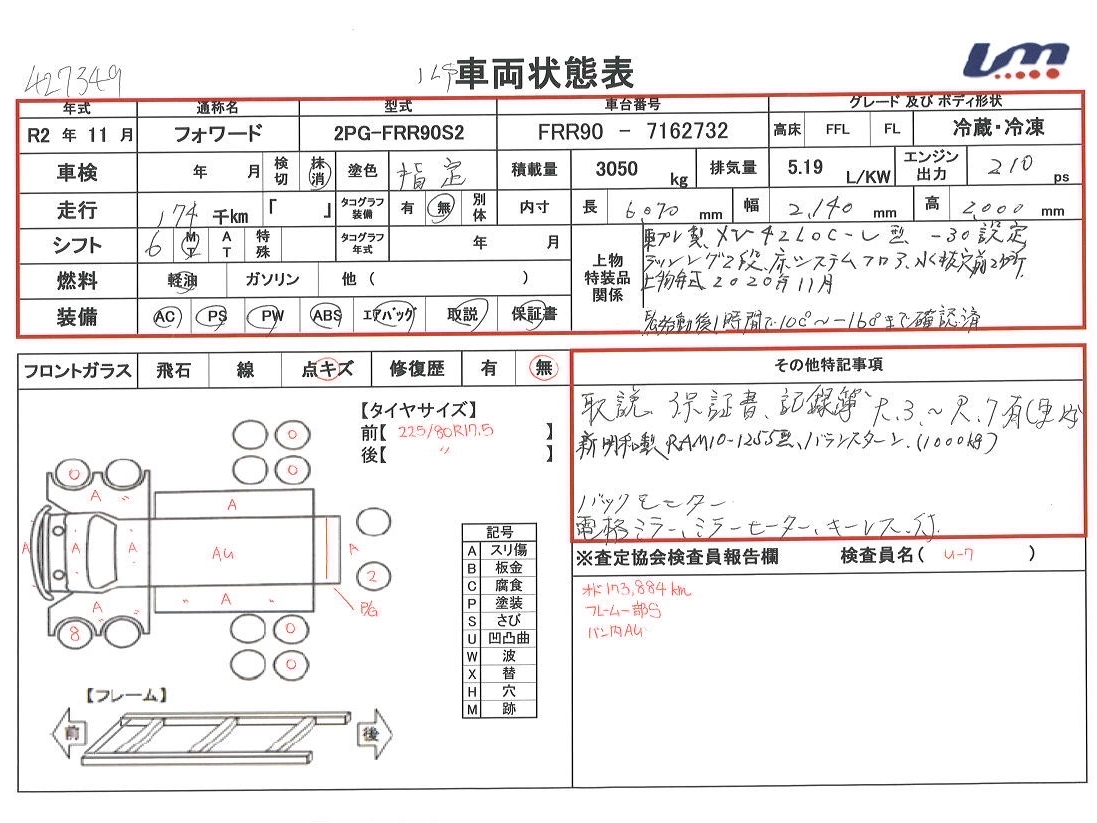 427349
車両状態表
年式 通称名 型式 車台番号 グレード 及び ボディ形状
R2 年 11 月 フォワード 2PG-FRR90S2 FRR90 - 7162732 高床 FFL FL 冷蔵・冷凍
車検 年 月 検切 抹消 塗色 指定 積載量 3050 kg 排気量 5.19 L/KW エンジン出力 210 ps
走行 174 千km 「 」 タコグラフ装備 有 無 別体 内寸 長 6,070 mm 幅 2,140 mm 高 2,000 mm
シフト 6 MT AT 特殊 タコグラフ年式 年 月
上物特装品関係
東プレ製、XV-42LOC-L型 -30設定
ラッシング2段、床システムフロア、水抜穴前2ヶ所
上物年式 2020年11月
始動後1時間で10c°~-16c°まで確認済
燃料 軽油 ガソリン 他 ( )
装備 AC PS PW ABS エアバッグ 取説 保証書
フロントガラス 飛石 線 点キズ 修復歴 有 無
その他特記事項
取説、保証書、記録簿 R.3~R.7有
新明和製 RAM10-125S型、バランスターン、(1000kg)
バックモニター
電格ミラー、ミラーヒーター、キーレス、付
【タイヤサイズ】
前【 225/80R17.5 】
後【 〃 】
0 0
0 A 〃 0
A
A A A AU A
2
A 〃 A 〃 P/G
8 0
0
記号
A スリ傷
B 板金
C 腐食
P 塗装
S さび
U 凹凸曲
W 波
X 替
H 穴
M 跡
【フレーム】
前 後
※査定協会検査員報告欄 検査員名( U-7 )
オド173,884km
フレーム一部S
バン内AU